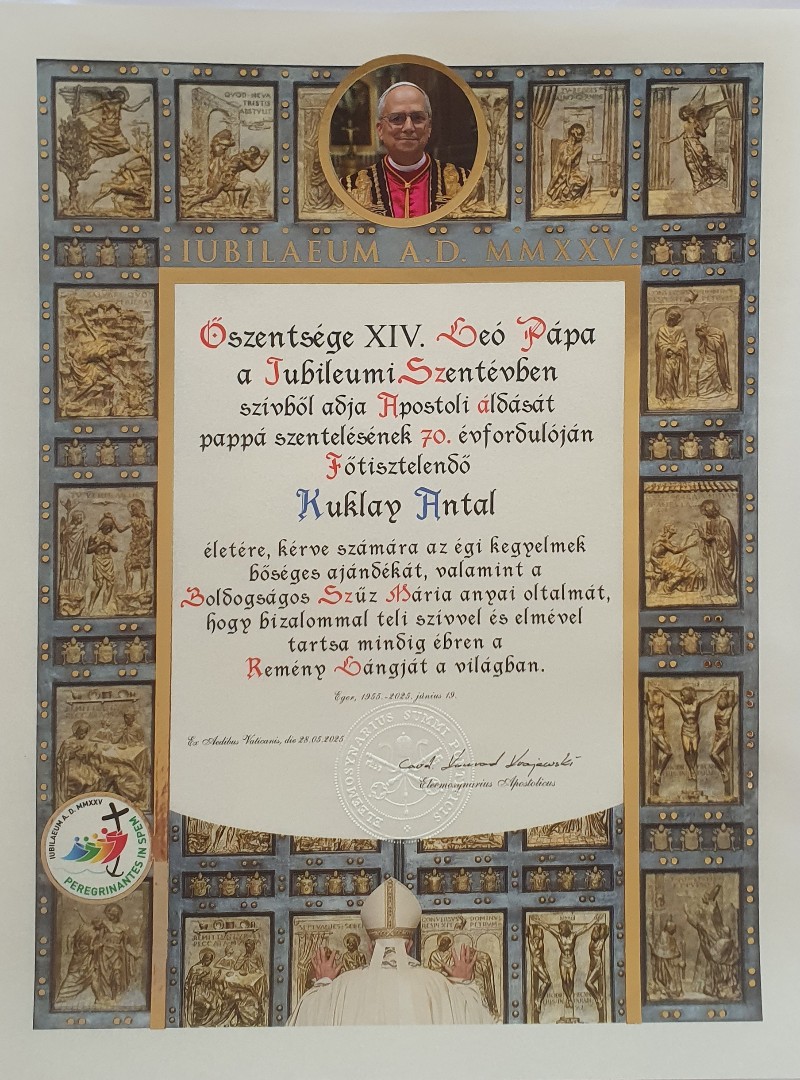 QUOD HEVA
TRISTIS
ABSTULIT
IUBILAEUM A.D. MMXXV
Őszentsége XIV. Leó Pápa
a Jubileumi Szentévben
szívből adja Apostoli áldását
pappá szentelésének 70. évfordulóján
Főtisztelendő
Kuklay Antal
életére, kérve számára az égi kegyelmek
bőséges ajándékát, valamint a
Boldogságos Szűz Mária anyai oltalmát,
hogy bizalommal teli szívvel és elmével
tartsa mindig ébren a
Remény Lángját a világban.
Eger, 1955.-2025. június 19.
Ex Aedibus Vaticanis, die 28.05.2025
Card. Konrad Krajewski
Eleemosynarius Apostolicus
ELEEMOSYNARIUS SUMMI PONTIFICIS
IUBILAEUM A. D. MMXXV
PEREGRINANTES IN SPEM